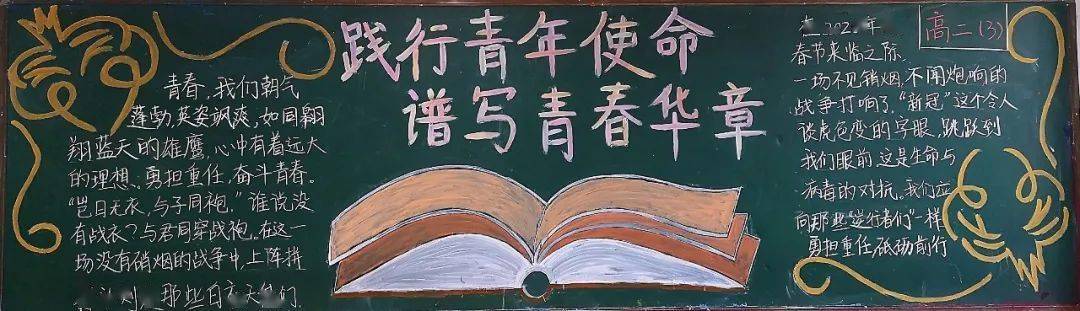 践行青年使命
谱写青春华章
青春,我们朝气
蓬勃,英姿飒爽,如同翱
翔蓝天的雄鹰,心中有着远大
的理想。勇担重任,奋斗青春。
“岂曰无衣,与子同袍,”谁说没
有战衣?与君同穿战袍。在这一
场没有硝烟的战争中,上阵拼
那些白衣天使们
高二(3)
在202年
春节来临之际,
一场不见销烟,不闻炮响的
战争打响了,“新冠”这个令人
谈虎色变的字眼,跳跃到
我们眼前,这是生命与
病毒的对抗。我们应
向那些“逆行者们”一样
勇担重任,砥砺前行